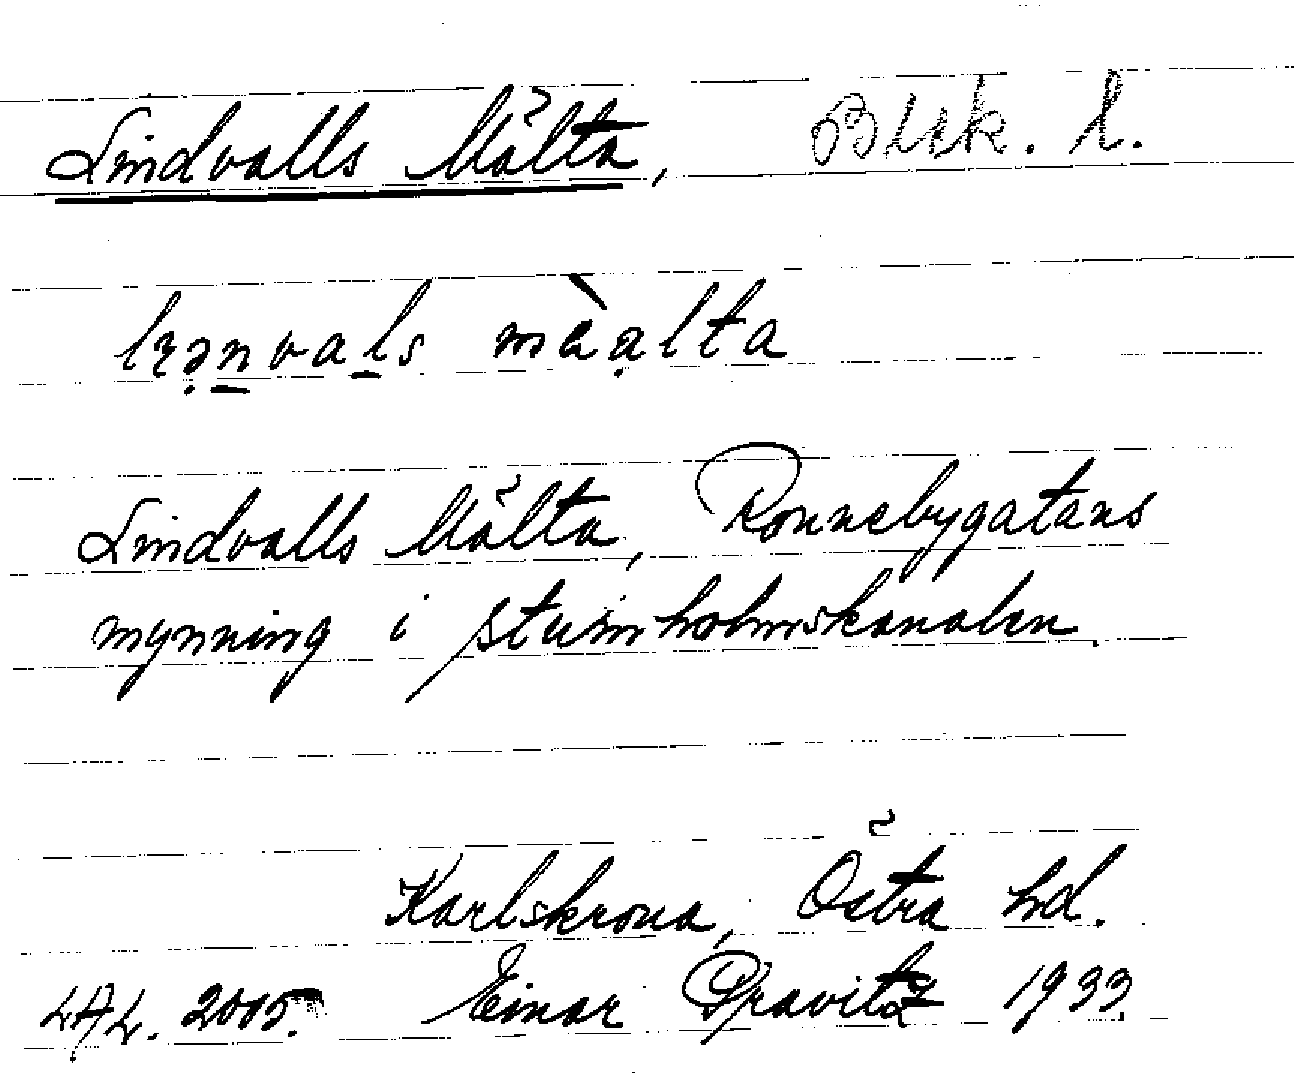 Lindvalls Mölta, Blek. l.
lɩə̣nvals mὰạlta
Lindvalls Mölta, Ronnebygatans
mynning i Stumholmskanalen.
Karlskrona, Östra hd.
LAL. 2005. Einar Pravitz 1933.